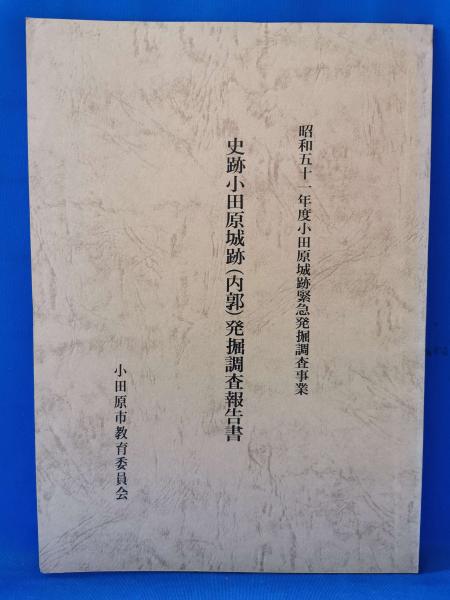 昭和五十一年度小田原城跡緊急発掘調査事業
史跡小田原城跡(内郭)発掘調査報告書
小田原市教育委員会